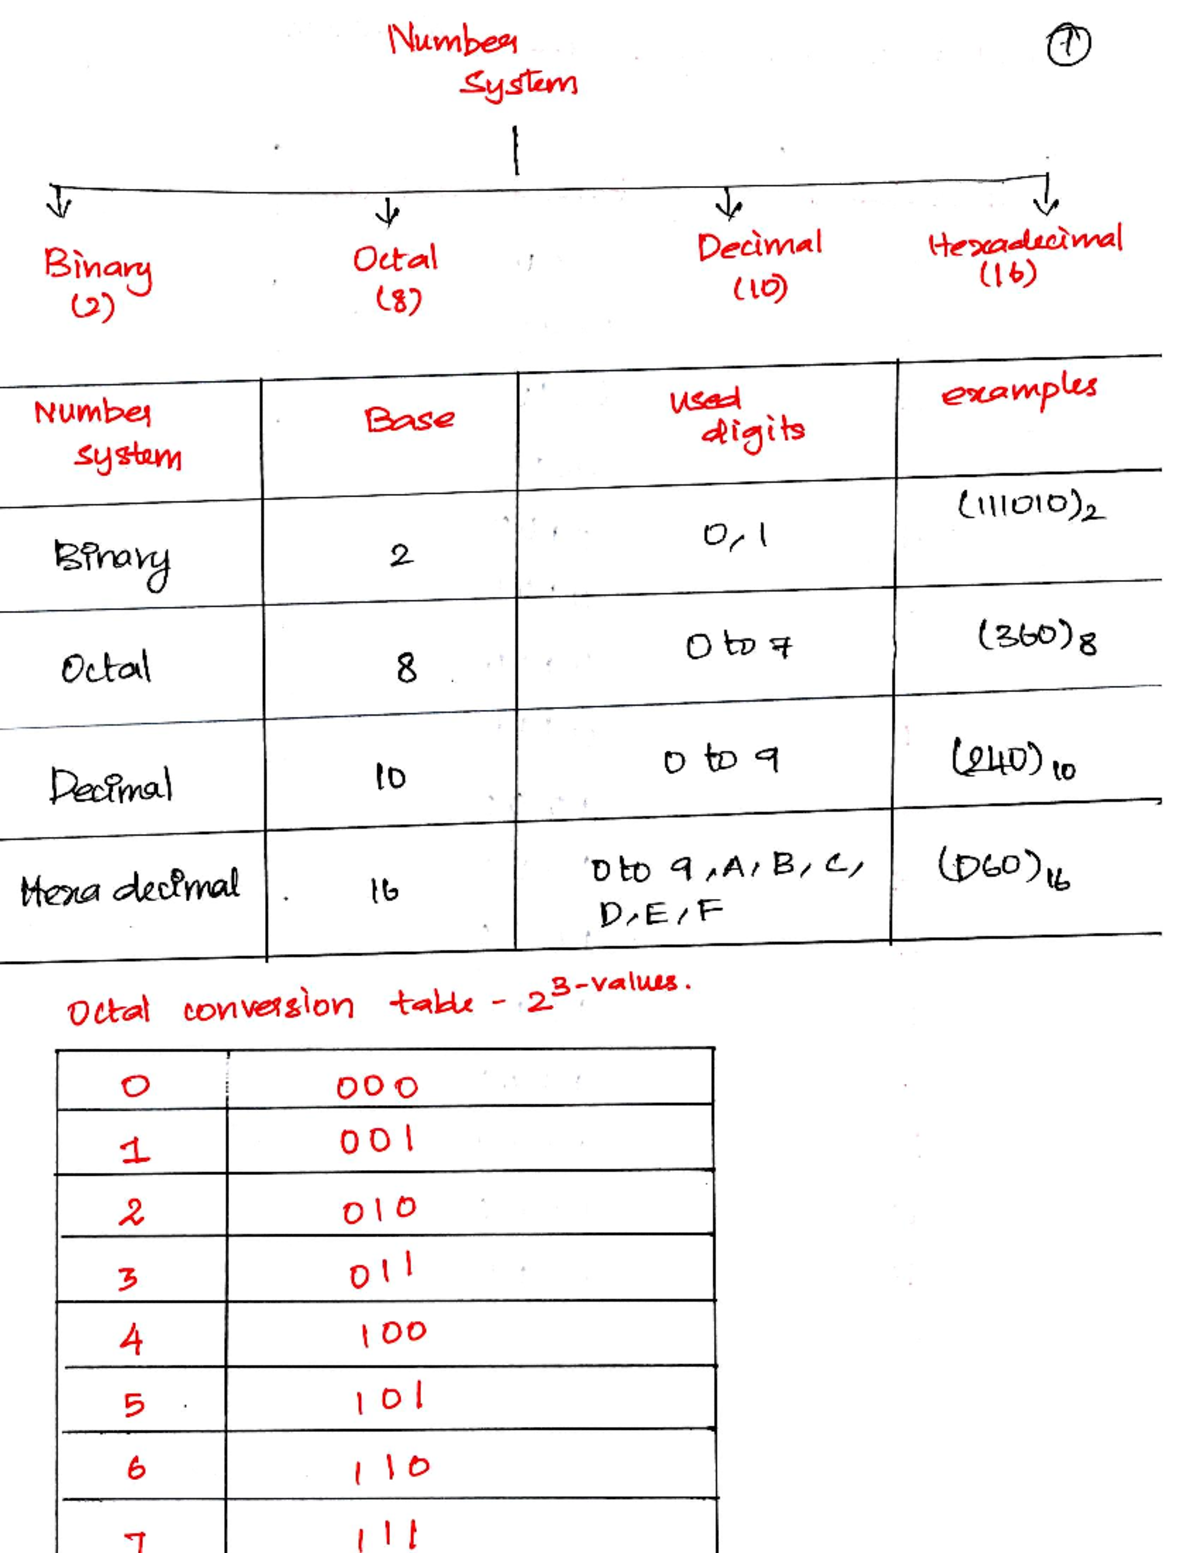 Number
System
1
Binary
(2)
Octal
(8)
Decimal
(10)
Hexadecimal
(16)
Number system Base used digits examples
Binary 2 0,1 (111010)2
Octal 8 0 to 7 (360)8
Decimal 10 0 to 9 (240)10
Hexa decimal 16 0 to 9,A,B,C, D,E,F (D60)16
Octal conversion table - 2^3-values.
0 000
1 001
2 010
3 011
4 100
5 101
6 110
7 111